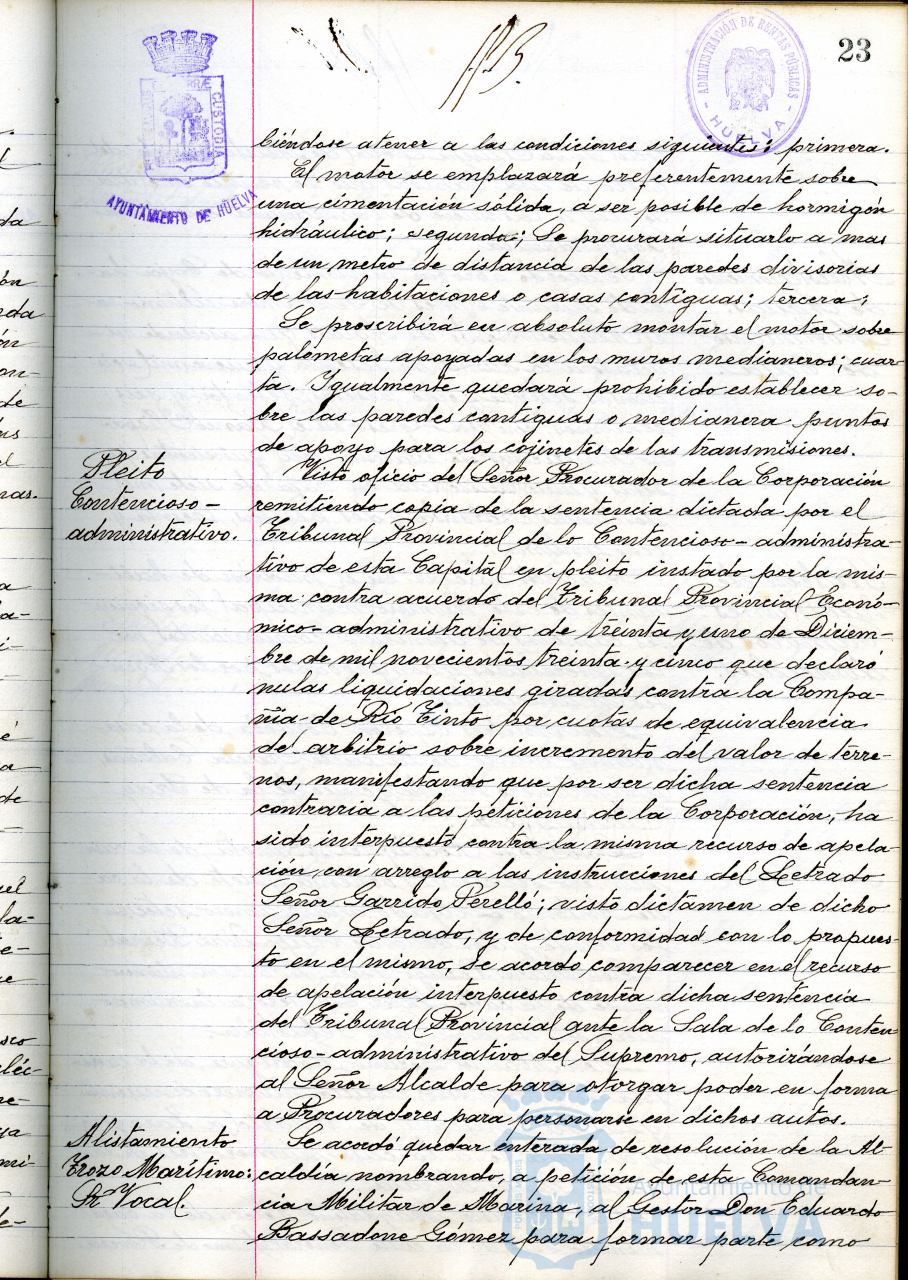 23
ADMINISTRACIÓN DE RENTAS PÚBLICAS
HUELVA
CUSTODIA
AYUNTAMIENTO DE HUELVA
biéndose atener a las condiciones siguientes: primera.
El motor se emplazará preferentemente sobre
una cimentación sólida, a ser posible de hormigón
hidráulico; segunda; Se procurará situarlo a mas
de un metro de distancia de las paredes divisorias
de las habitaciones o casas contiguas; tercera;
Se proscribirá en absoluto montar el motor sobre
palometas apoyadas en los muros medianeros; cuar
ta. Igualmente quedará prohibido establecer so-
bre las paredes contiguas o medianera puntos
de apoyo para los cojinetes de las transmisiones.
Pleito
Contencioso-
administrativo.
Visto oficio del Señor Procurador de la Corporación
remitiendo copia de la sentencia dictada por el
Tribunal Provincial de lo Contencioso-administra-
tivo de esta Capital en pleito instado por la mis-
ma contra acuerdo del Tribunal Provincial Econó-
mico-administrativo de treinta y uno de Diciem-
bre de mil novecientos treinta y cinco que declaró
nulas liquidaciones giradas contra la Compa-
ñia de Rio Tinto por cuotas de equivalencia
del arbitrio sobre incremento del valor de terre-
nos, manifestando que por ser dicha sentencia
contraria a las peticiones de la Corporación, ha
sido interpuesto contra la misma recurso de apela-
ción, con arreglo a las instrucciones del Letrado
Señor Garrido Perelló; visto dictamen de dicho
Señor Letrado, y de conformidad con lo propues-
to en el mismo, se acordó comparecer en el recurso
de apelación interpuesto contra dicha sentencia
del Tribunal Provincial ante la Sala de lo Conten
cioso-administrativo del Supremo, autorizándose
al Señor Alcalde para otorgar poder en forma
a Procuradores para personarse en dichos autos.
Alistamiento
Trozo Marítimo:
Sr. Vocal.
Se acordó quedar enterada de resolución de la Al-
caldía nombrando, a petición de esta Comandan-
cia Militar de Marina, al Gestor Don Eduardo
Bassadone Gómez para formar parte como
Ayuntamiento de
HUELVA